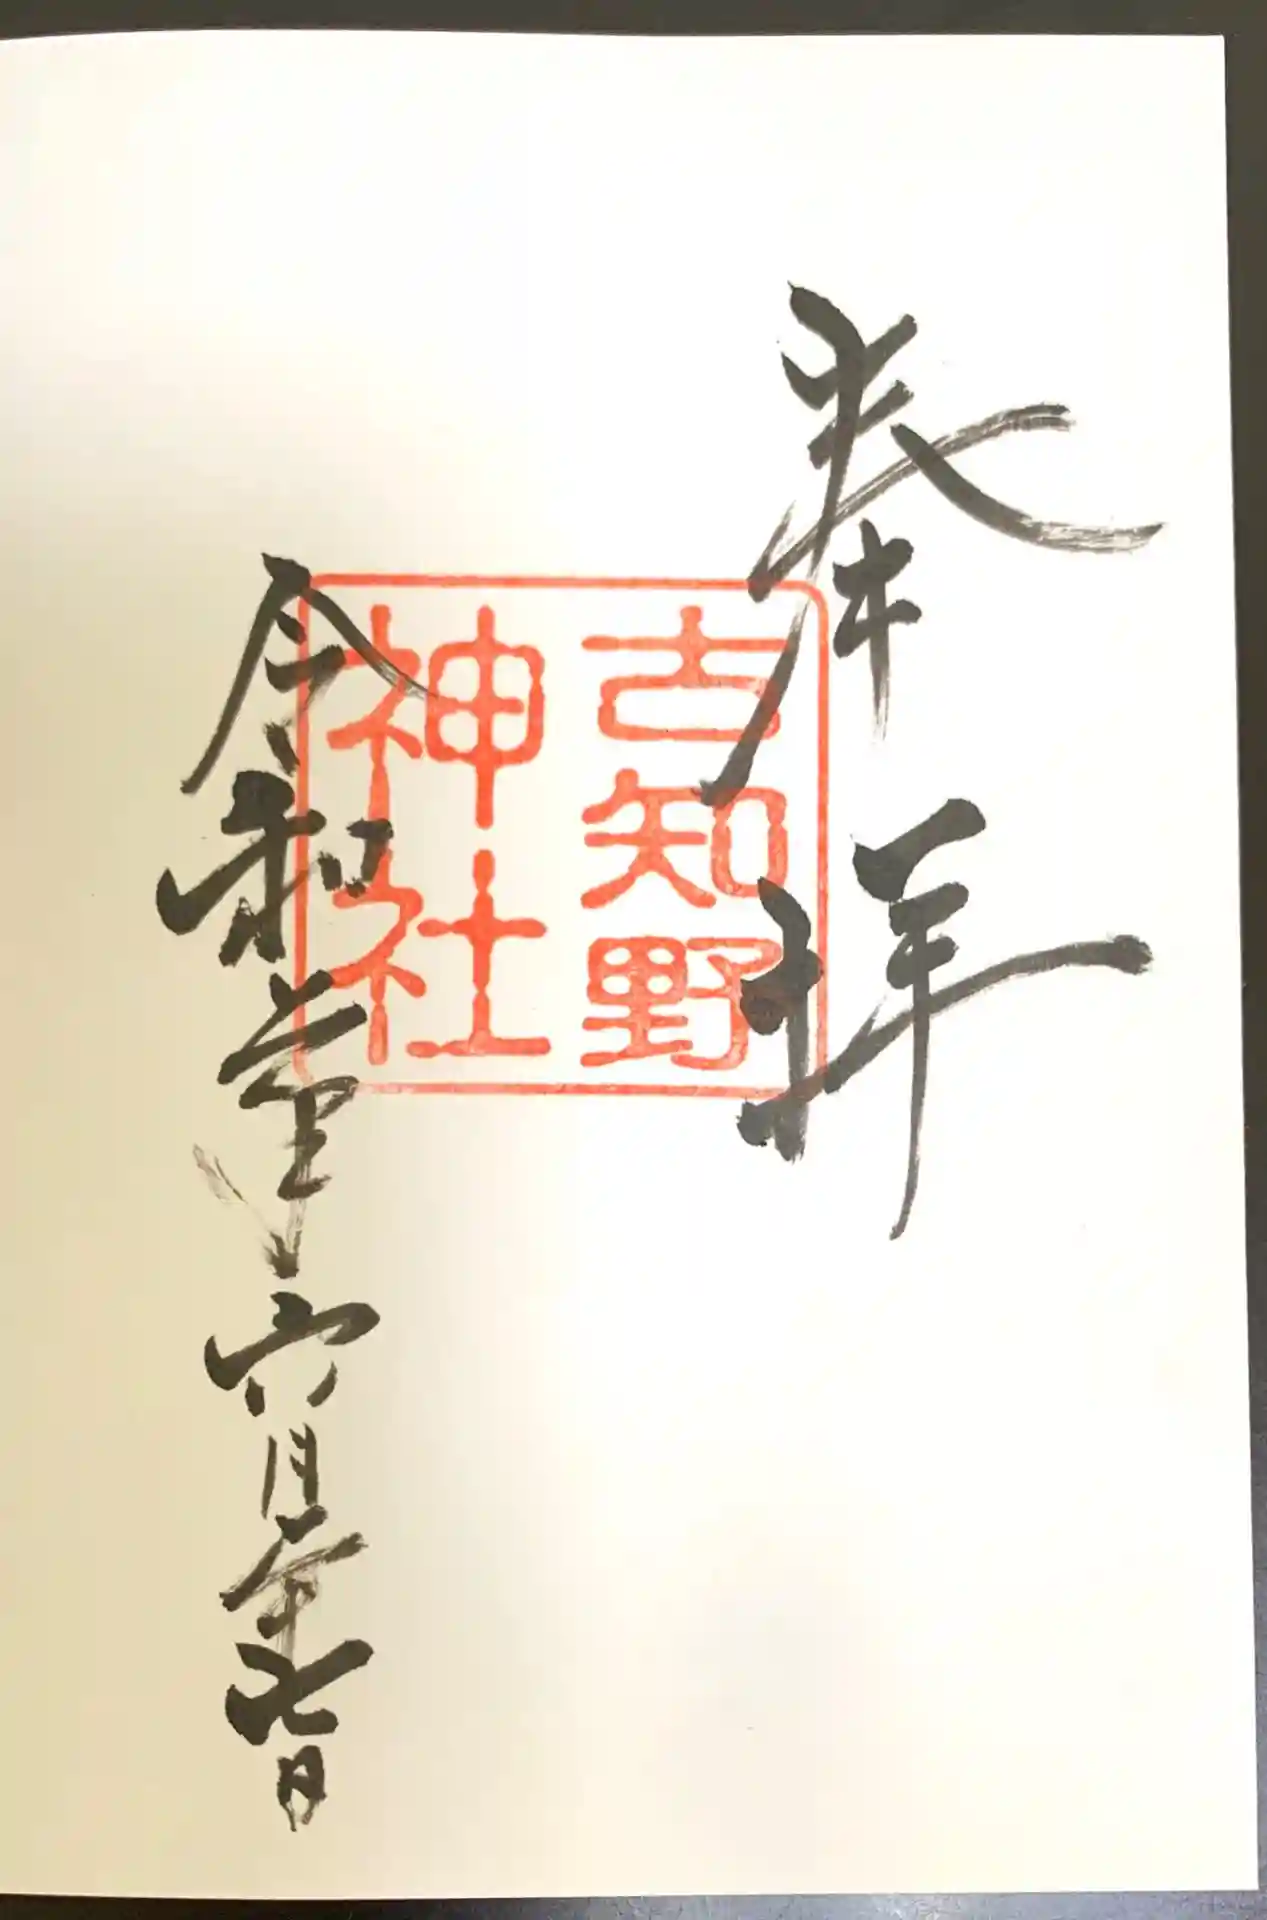 奉拝
古知野
神社
令和年六月二十七日